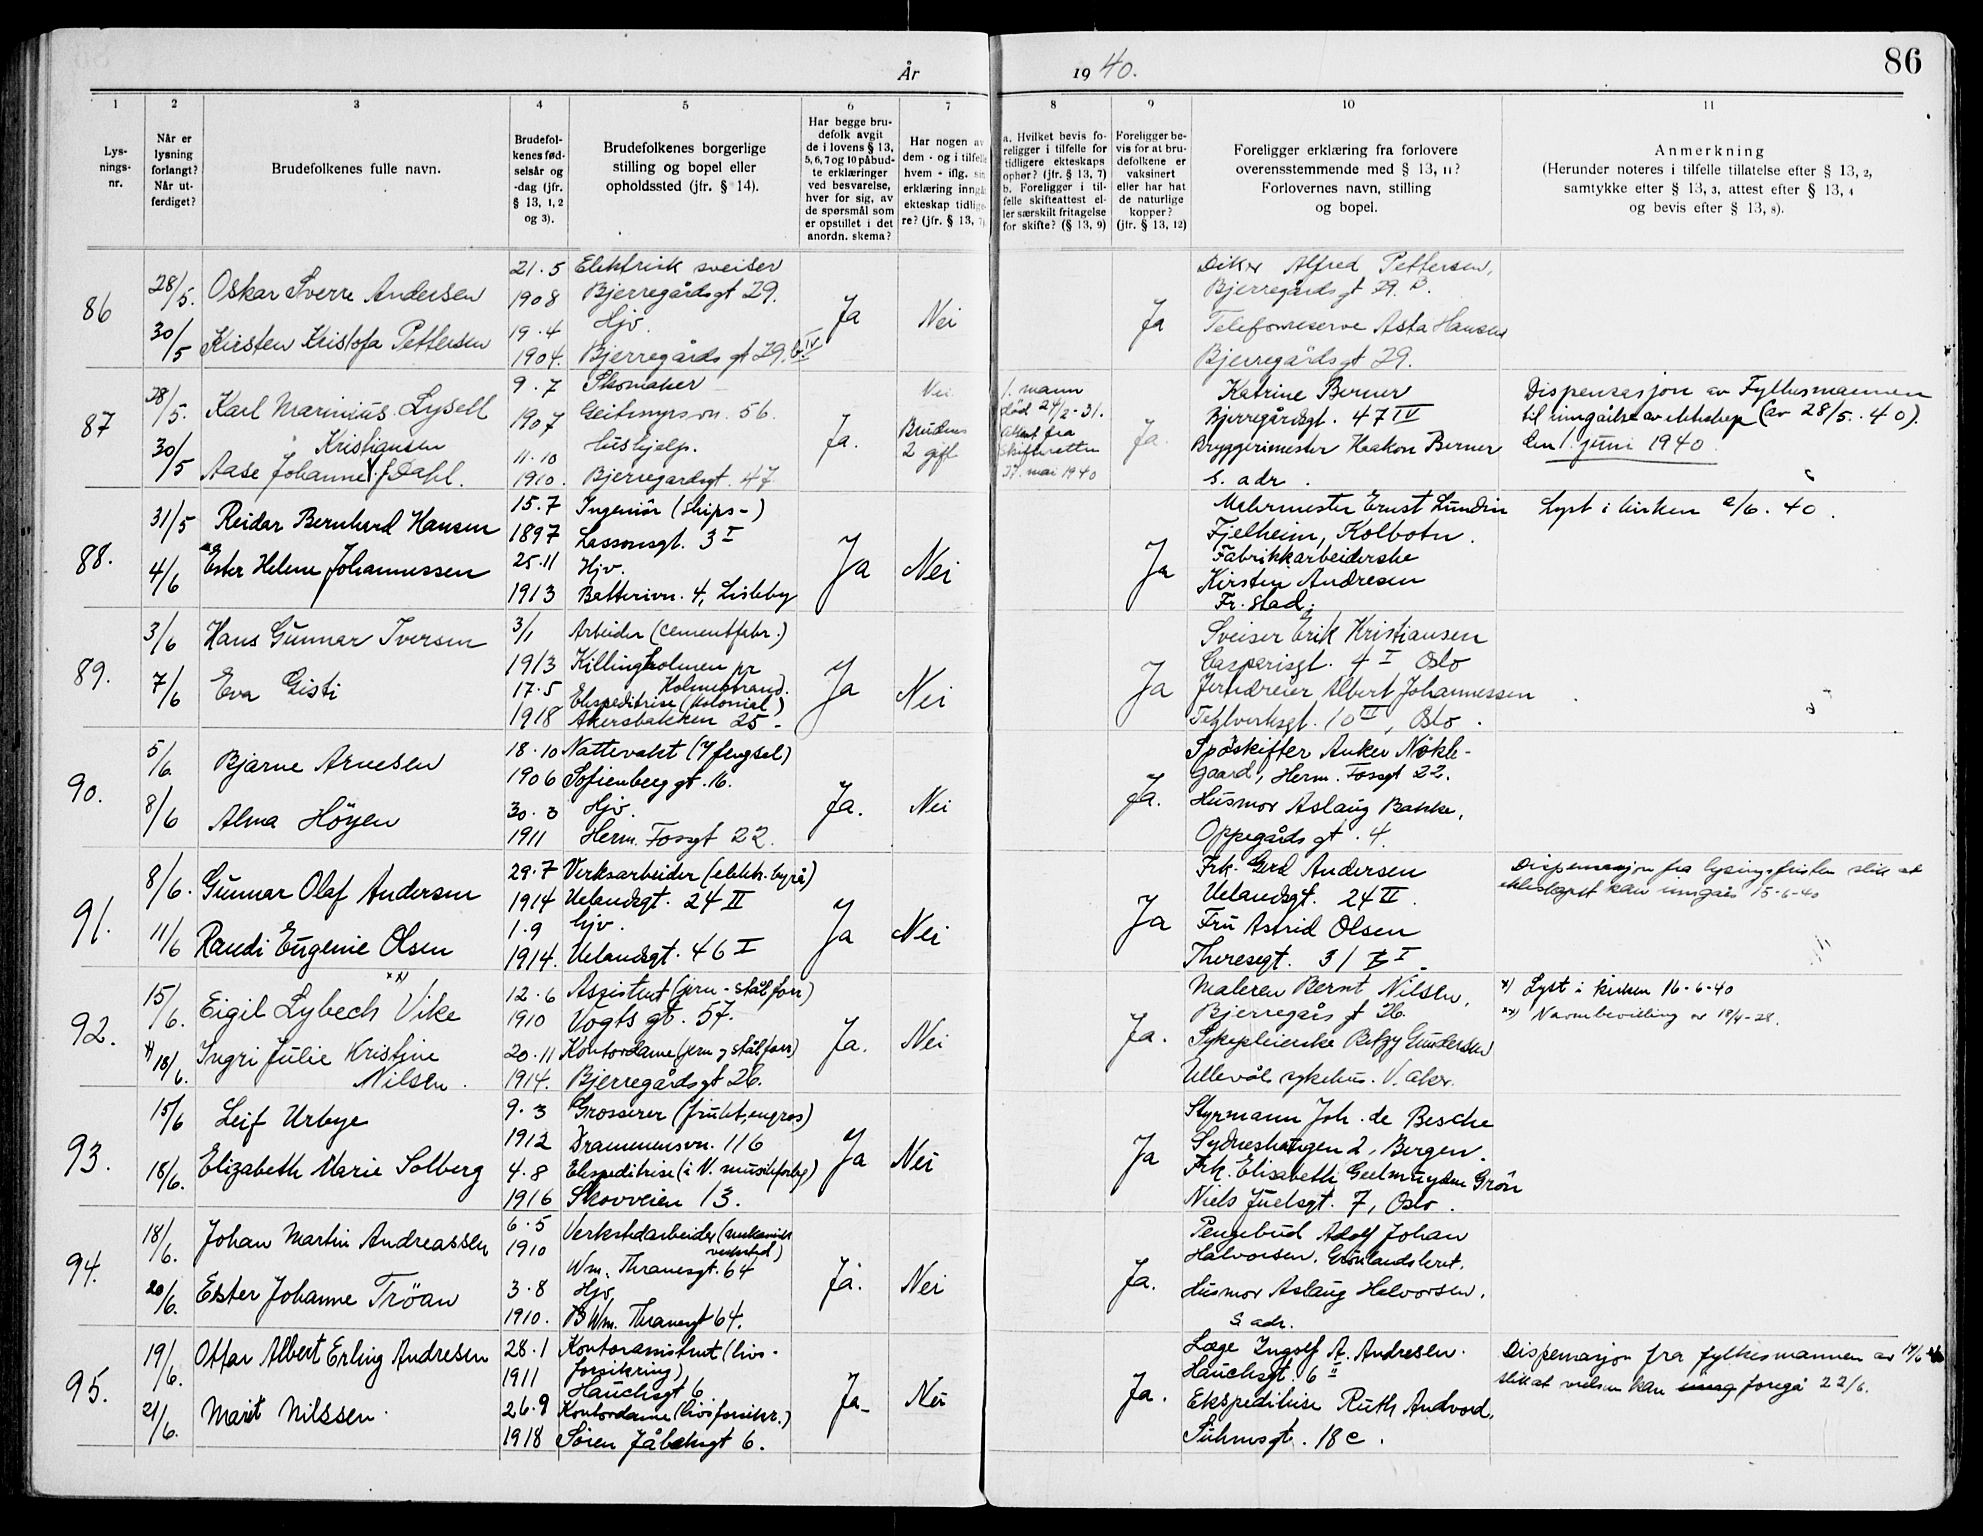 År 1940. 86
1 2 3 4 5 6 7 8 9 10 11
Lys-
nings-
nr.
Når er
lysning
forlangt?
Når ut-
ferdiget?
Brudefolkenes fulle navn.
Brudefol-
kenes fød-
selsår og
-dag (jfr.
§ 13, 1, 2
og 3).
Brudefolkenes borgerlige
stilling og bopel eller
opholdssted (jfr. § 14).
Har begge bru-
defolk avgit
de i lovens § 13,
5, 6, 7 og 10 påbud-
te erklæringer
ved besvarelse,
hver for sig, av
de spørsmål som
er opstillet i det
anordn. skema?
Har nogen av
dem - og i tilfelle
hvem - iflg. sin
erklæring inngått
ekteskap tidlige-
re? (jfr. § 13, 7)
a. Hvilket bevis fo-
religger i tilfelle for
tidligere ekteskaps
ophør? (jfr. § 13, 7)
b. Foreligger i til-
felle skifteattest el-
ler særskilt fritagelse
for skifte? (§ 13, 9)
Foreligger be-
vis for at bru-
defolkene er
vaksinert
eller har hat
de naturlige
kopper?
(jfr. § 13, 12)
Foreligger erklæring fra forlovere
overensstemmende med § 13, 11?
Forlovernes navn, stilling
og bopel.
Anmerkning
(Herunder noteres i tilfelle tillatelse efter § 13, 2,
samtykke efter § 13, 3, attest efter § 13, 4
og bevis efter § 13, 8).
86
28/5.
30/5
Oskar Sverre Andersen
Kirsten Kristofa Pettersen
21.5
1908
19.4
1904.
Elektrisk sveiser
Bjerregårdsgt 29.
Hjv.
Bjerregårdsgt 29. b IV
Ja
Nei
Ja
Alfred Pettersen,
Bjerregårdsgt 29. B.
Asta Hansen
Bjerregårdsgt 29.
87
28/5.
30/5
Karl Marinius Lysell
Kristiansen
Aase Johanne f. Dahl.
9.7
1907
11.10
1910.
Skomaker
Geitmyrsvn. 56.
hushjelp.
Bjerregardsgt. 47
Ja.
Nei
Bruden
2 gift
1. mann
død 24/2-31.
Attest fra
skifteretten
27. mai 1940
Ja.
Katrine Berner
Bjerregårdsgt. 47 IV
Bryggerimester Haakon Berner
s. adr.
Dispensasjon av Fylkesmannen
til inngåelse av ekteskap (av 28/5.40).
den 1. juni 1940.
88.
31/5
4/6
Reidar Bernhard Hansen
Ester Helene Johannessen
15.7
1897
25.11
1913
Ingeniör (skips-)
Lassonsgt. 3 I
Hjv.
Batterivn. 4, Lisleby
Ja
Nei
Ja
Ernst Lundin
Fjelheim, Kolbotn.
Fabrikkarbeiderske
Kirsten Andresen
Fr.stad.
Lyst i kirken 2/6.40.
89.
3/6
7/6
Hans Gunnar Iversen
Eva Gisti
3/1
1913
17.5
1918
Arbeider (cementfabr.)
Killingholmen pr
Holmestrand.
Ekspeditrise (kolonial)
Akersbakken 25-
Ja
Nei
Ja
Sveiser Erik Kristiansen
Casparisgt. 4 I Oslo
Jerndreier Albert Johannessen
Teglverksgt. 10 III, Oslo.
90.
5/6.
8/6
Bjarne Arnesen
Alma Höyen
18.10
1906
30.3
1911
Nattevakt (
Sofienberggt. 16.
Hjv.
Herm. Fossgt 22.
Ja.
Nei
Ja.
Anker Nökle-
gaard, Herm. Fossgt 22.
Husmor Aslaug Bakke,
Oppegårdsgt. 4.
91.
8/6.
11/6
Gunnar Olaf Andersen
Randi Eugenie Olsen
29.7
1914
1.9
1914.
Verksarbeider (elektr. byrå)
Uelandsgt. 24 II
hjv.
Uelandsgt. 46 I
Ja
Nei
Ja
Frk. Gerd Andersen
Uelandsgt. 24 II.
Fru Astrid Olsen
Theresegt. 31 B I.
Dispensasjon fra lysingsfristen slik at
ekteskapet kan inngås 15-6-40
92.
15/6.
x) 18/6.
Eigil Lybech xx) Vike
Ingri Julie Kristine
Nilsen.
12.6
1910
20.11
1914.
Assistent (jern- stål forr)
Vogts gt. 57.
Kontordame (jern og stålforr)
Bjerregårdsgt 26.
Ja.
Nei
Ja.
Maleren Bernt Nilsen,
Bjerregårs gt 26.
Sykepleierske Betzy Gundersen
Ullevål sykehus. V. aker.
x) Lyst i kirken 16-6-40
xx) Navnebevilling av 18/4-28.
93.
15/6
18/6.
Leif Urbye
Elizabeth Marie Solberg
9.3
1912
4.8
1916
Grosserer (frukt, engros)
Drammensvn. 116
Ekspeditrise (i N. musikforlag)
Skovveien 13.
Ja
Nei
Ja
Styrmann Joh. de Besche
Sydneshaugen 2, Bergen.
Frk. Elisabeth Geelmuyden Grön
Niels Juelsgt. 7, Oslo.
94.
18/6.
20/6.
Johan Martin Andreassen
Ester Johanne Tröan
6.5
1910
3.8
1910.
Verkstedarbeider (mekanisk
verksted)
Wm. Thranesgt. 64
Hjv.
Wm. Thranesgt 64.
Ja.
Nei
Ja.
Pengebud Adolf Johan
Halvorsen. Grönlandsleret.
Husmor Aslaug Halvorsen.
S adr.
95.
19/6.
21/6.
Ottar Albert Erling Andresen
Marit Nilssen.
28.1
1911
26.9
1918
Kontorassistent (livs-
forsikring)
Hauchsgt 6
Kontordame (livsforsikr.)
Sören Jåbeksgt 6.
Ja-
Nei
Ja.
Læge Ingolf A. Andresen.
Hauchsgt. 6 II
Ekspeditrise Ruth Andvord.
Suhmsgt. 18 c.
Dispensasjon fra fylkesmannen av 19/6 40
slik at vielsen kan foregå 22/6.